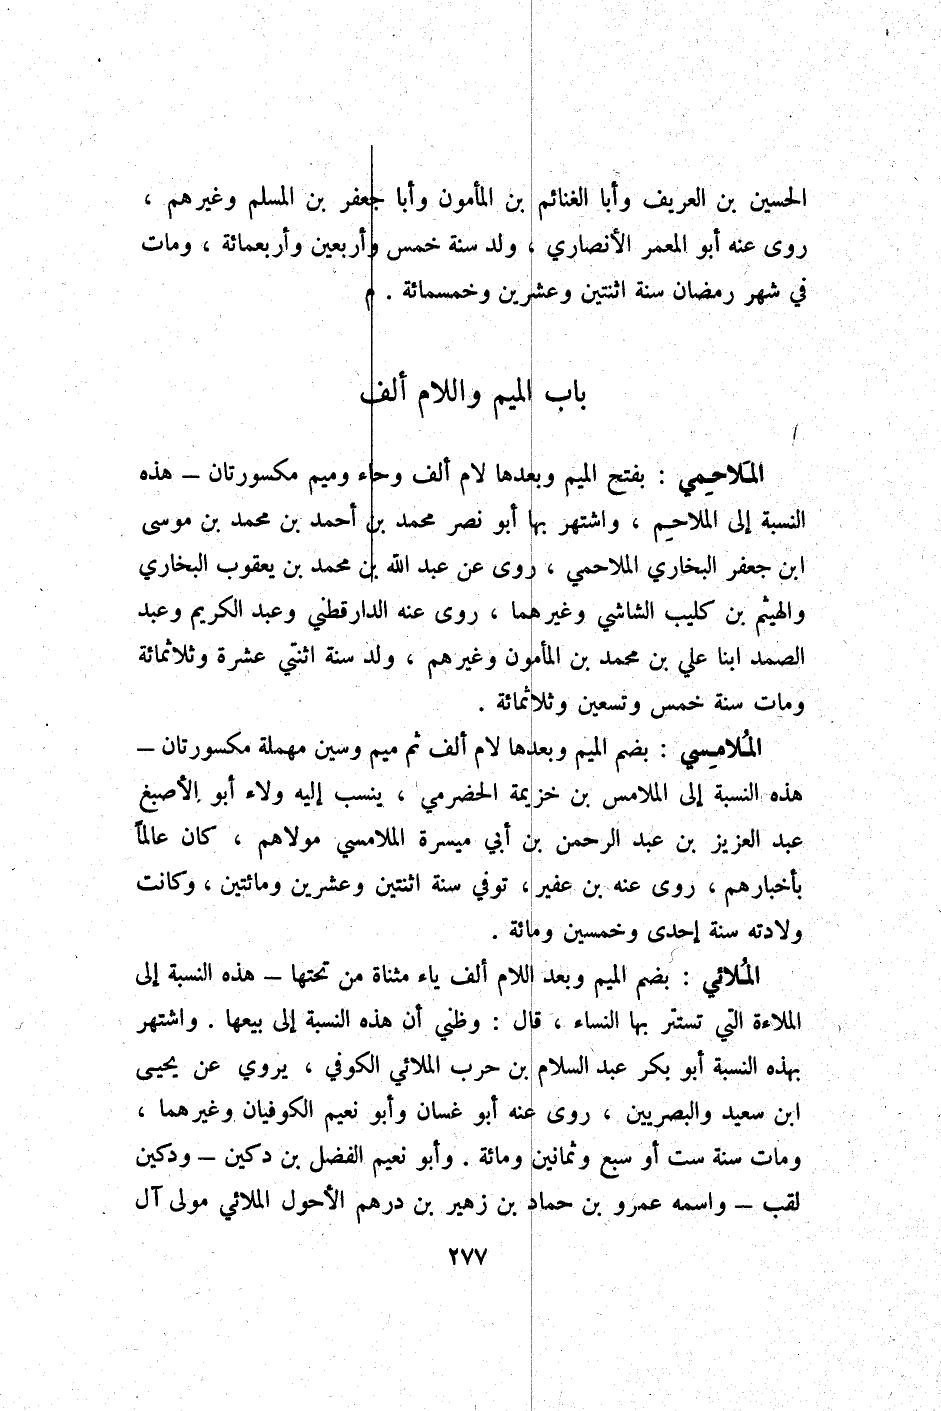 الحسين بن العريف وأبا الغنائم بن المأمون وأبا جعفر بن المسلم وغيرهم ،
روى عنه أبو المعمر الأنصاري ، ولد سنة خمس وأربعين وأربعمائة ، ومات
في شهر رمضان سنة اثنتين وعشرين وخمسمائة . م
باب الميم واللام ألف
المَلاحِمي : بفتح الميم وبعدها لام ألف وحاء وميم مكسورتان – هذه
النسبة إلى الملاحِم ، واشتهر بها أبو نصر محمد بن أحمد بن محمد بن موسى
ابن جعفر البخاري الملاحمي ، روى عن عبد الله بن محمد بن يعقوب البخاري
والهيثم بن كليب الشاشي وغيرهما ، روى عنه الدارقطني وعبد الكريم وعبد
الصمد ابنا علي بن محمد بن المأمون وغيرهم ، ولد سنة اثنتي عشرة وثلاثمائة
ومات سنة خمس وتسعين وثلاثمائة .
المُلامِسي : بضم الميم وبعدها لام ألف ثم ميم وسين مهملة مكسورتان –
هذه النسبة إلى الملامس بن خزيمة الحضرمي ، ينسب إليه ولاء أبو الأصبغ
عبد العزيز بن عبد الرحمن بن أبي ميسرة الملامسي مولاهم ، كان عالماً
بأخبارهم ، روى عنه بن عفير ، توفي سنة اثنتين وعشرين ومائتين ، وكانت
ولادته سنة إحدى وخمسين ومائة .
المُلائي : بضم الميم وبعد اللام ألف ياء مثناة من تحتها – هذه النسبة إلى
الملاءة التي تستتر بها النساء ، قال : وظني أن هذه النسبة إلى بيعها . واشتهر
بهذه النسبة أبو بكر عبد السلام بن حرب الملائي الكوفي ، يروي عن يحيى
ابن سعيد والبصريين ، روى عنه أبو غسان وأبو نعيم الكوفيان وغيرهما ،
ومات سنة ست أو سبع وثمانين ومائة . وأبو نعيم الفضل بن دكين – ودكين
لقب – واسمه عمرو بن حماد بن زهير بن درهم الأحول الملائي مولى آل
٢٧٧